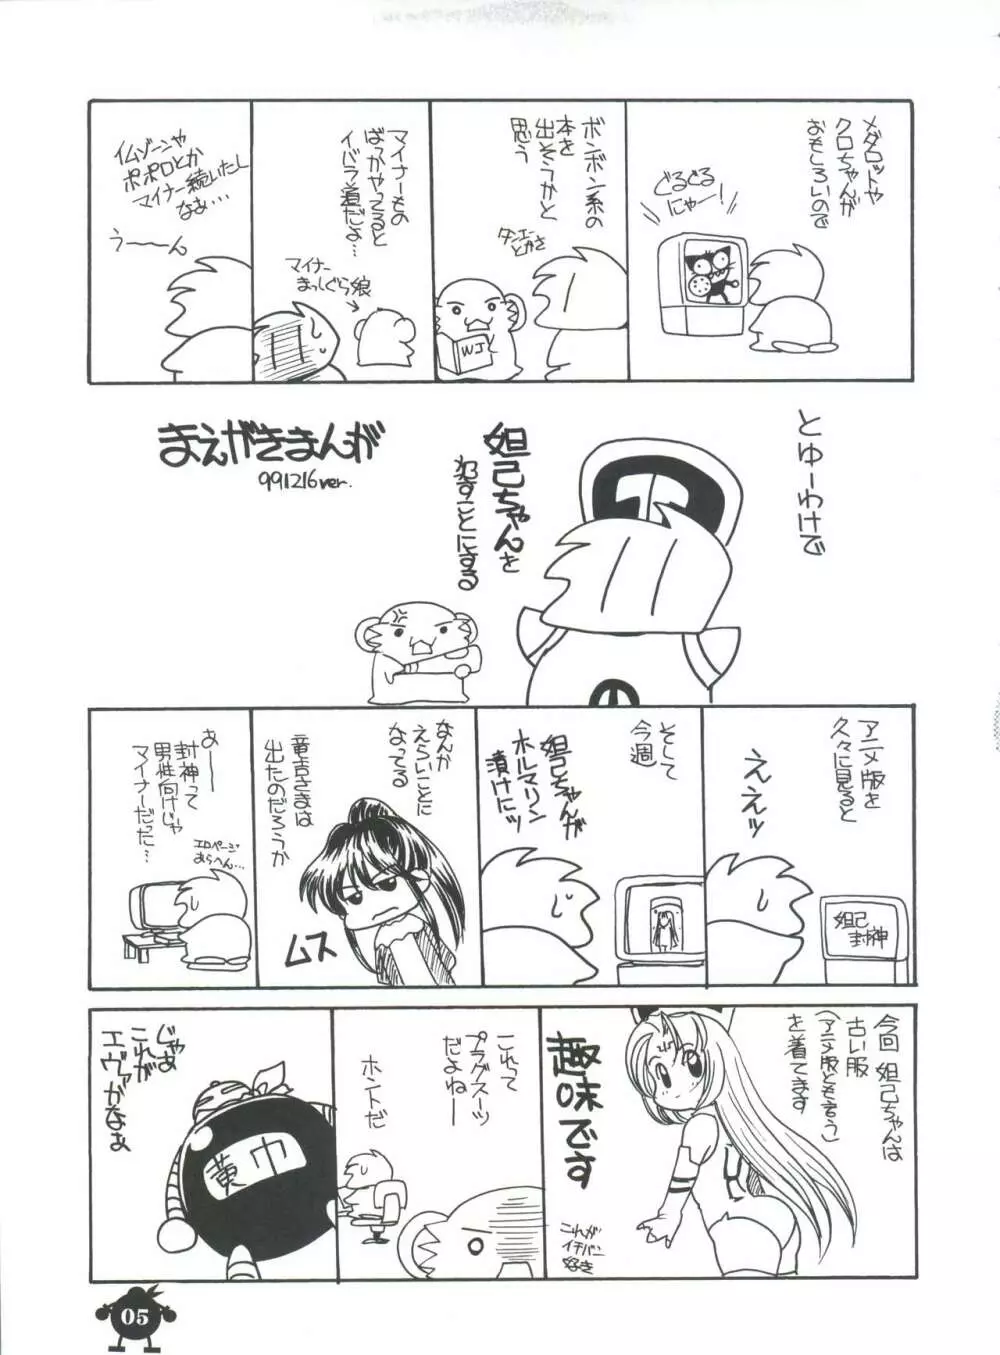 メダロットや
クロちゃんが
おもしろいので
ぐるぐる
にゃー!
ボンボン系の
本を
出そうかと
思う
ダンエー
とかさ
WJ
マイナーもの
ばっかやってると
イバラ道だよ…
マイナー
まっしぐら娘
イムゾーンや
ポポロとか
マイナー続いたし
なぁ…
う〜〜ん
まえがきまんが
991216ver.
とゆーわけで
妲己ちゃんを
犯すことにする
アニメ版を
久々に見ると
ええッ
妲己
封神
そして
今週
妲己ちゃんが
ホルマリン
漬けにッ
なんか
えらいことに
なってる
竜吉さまは
出たのだろうか
ムス
あーー
封神って
男性向けじゃ
マイナーだった…
エロページ
あらへん…
今回 妲己ちゃんは
古い服
(アニメ版とも言う)
を着てます
趣味です
これが
イチバン
好き
これって
プラグスーツ
だよねー
ホントだ
じゃあ
これが
エヴァかなぁ
黄巾
05